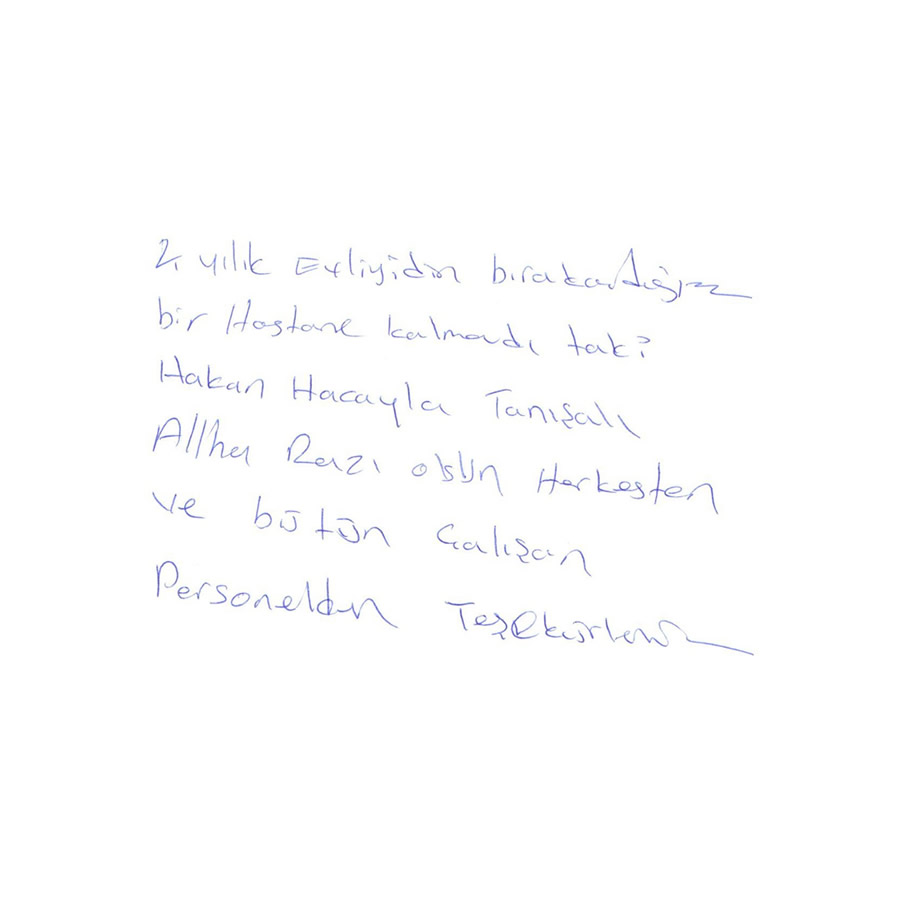 2, yılık Evliyidin bırakardığımız
bir Hastane kalmadı tak?
Hakan Hacayla Tanışalı
Allha Razı olsun Herkesten
ve bütün Çalışan
Personeldin Teşekürler